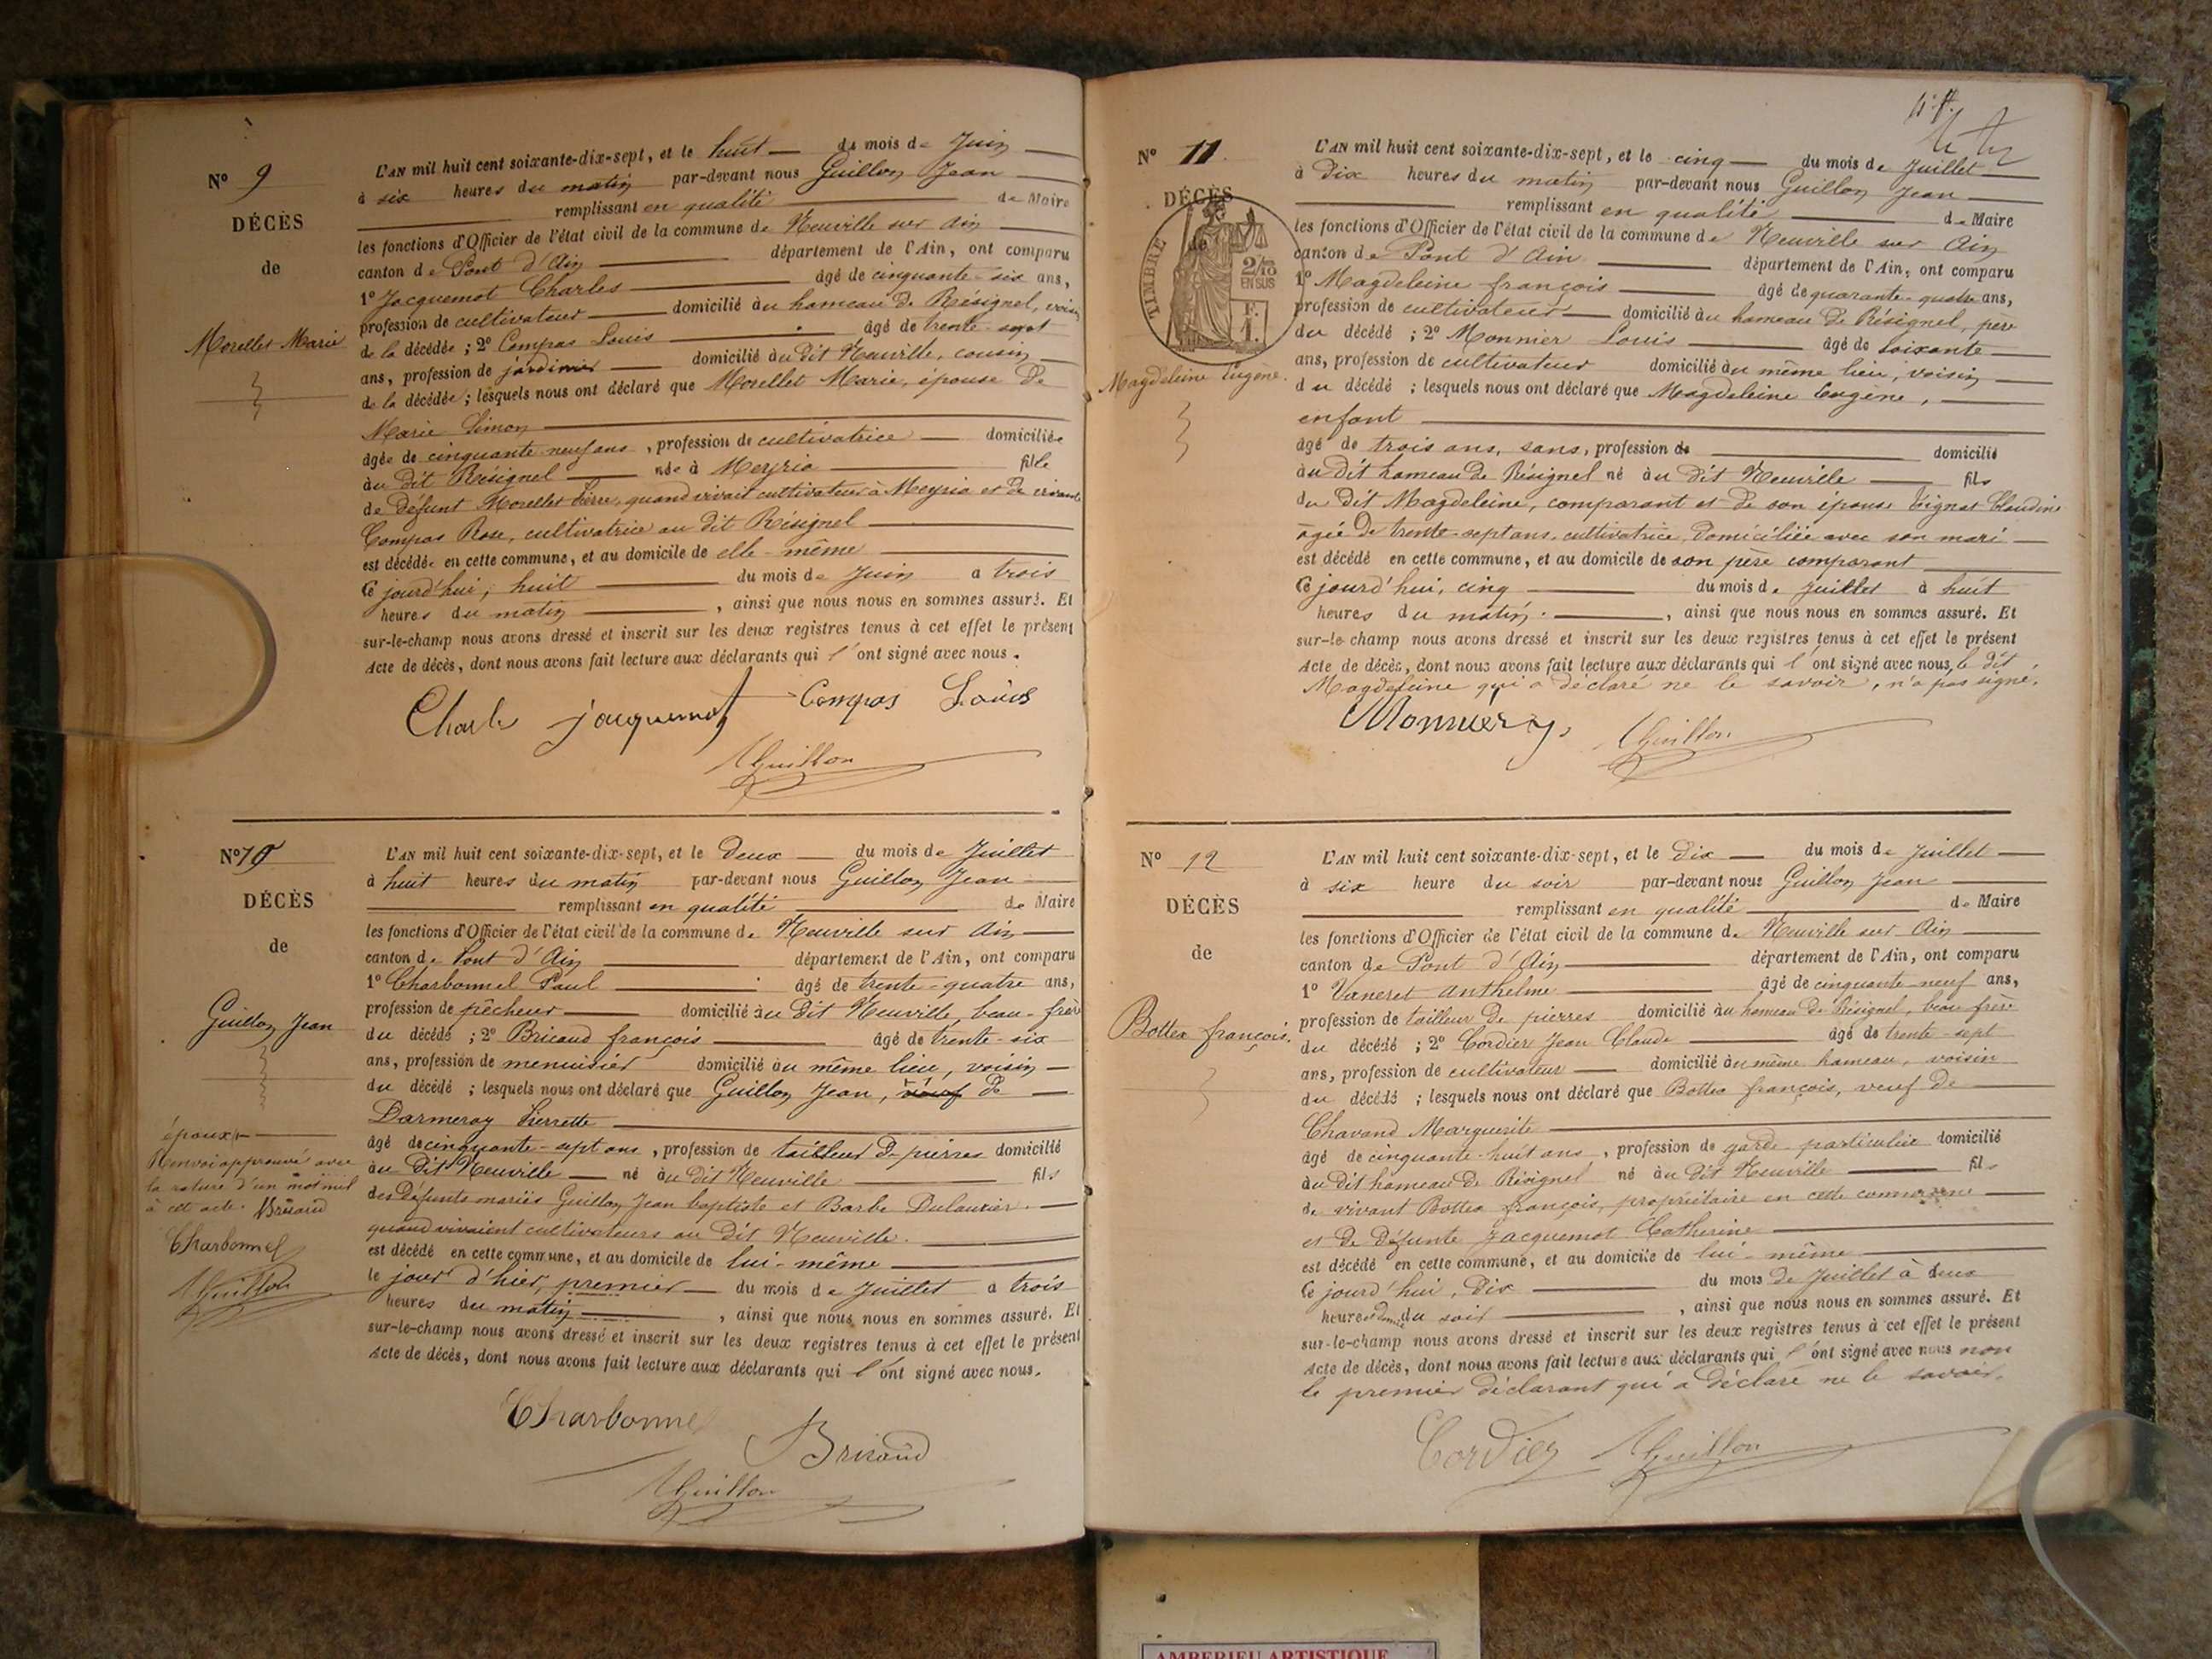 N° 9
DÉCÈS
de
Morellet Marie
L'AN mil huit cent soixante-dix-sept, et le huit du mois de Juin
à six heures du matin par-devant nous Guillon Jean
remplissant en qualité de Maire
les fonctions d'Officier de l'état civil de la commune de Neuville sur Ain
canton de Pont d'Ain département de l'Ain, ont comparu
1° Jacquemot Charles âgé de cinquante-six ans,
profession de cultivateur domicilié au hameau de Résignel, voisin
de la décédée ; 2° Compas Louis âgé de trente-sept
ans, profession de jardinier domicilié au dit Neuville, cousin
de la décédée ; lesquels nous ont déclaré que Morellet Marie, épouse de
Marie Simon
âgée de cinquante-neuf ans, profession de cultivatrice domiciliée
au dit Résignel née à Meyria fille
de défunt Morellet Pierre, quand vivait cultivateur à Meyria et de vivante
Compas Rose, cultivatrice au dit Résignel
est décédée en cette commune, et au domicile de elle-même
Ce jourd'hui, huit du mois de Juin à trois
heures du matin, ainsi que nous nous en sommes assuré. Et
sur-le-champ nous avons dressé et inscrit sur les deux registres tenus à cet effet le présent
Acte de décès, dont nous avons fait lecture aux déclarants qui l'ont signé avec nous.
Charles jacquemot Compas Louis
Guillon
N° 10
DÉCÈS
de
Guillon Jean
époux
Renvoi approuvé avec
la rature d'un mot nul
à cet acte. Bricaud
Charbonnel
Guillon
L'AN mil huit cent soixante-dix-sept, et le deux du mois de Juillet
à huit heures du matin par-devant nous Guillon Jean
remplissant en qualité de Maire
les fonctions d'Officier de l'état civil de la commune de Neuville sur Ain
canton de Pont d'Ain département de l'Ain, ont comparu
1° Charbonnel Paul âgé de trente-quatre ans,
profession de pêcheur domicilié au dit Neuville, beau-frère
du décédé ; 2° Bricaud françois âgé de trente-six
ans, profession de menuisier domicilié au même lieu, voisin
du décédé ; lesquels nous ont déclaré que Guillon Jean, veuf de
Darmeray Pierrette
âgé de cinquante-sept ans, profession de tailleur de pierres domicilié
au dit Neuville né au dit Neuville fils
des défunts mariés Guillon Jean baptiste et Barbe Dulaurier.
quand vivaient cultivateurs au dit Neuville.
est décédé en cette commune, et au domicile de lui-même
le jour d'hier, premier du mois de Juillet à trois
heures du matin, ainsi que nous nous en sommes assuré. Et
sur-le-champ nous avons dressé et inscrit sur les deux registres tenus à cet effet le présent
Acte de décès, dont nous avons fait lecture aux déclarants qui l'ont signé avec nous.
Charbonnel
Bricaud
Guillon
N° 11
DÉCÈS
de
TIMBRE
2/10
EN SUS
F.
1.
Magdeleine Eugène.
L'AN mil huit cent soixante-dix-sept, et le cinq du mois de Juillet
à Dix heures du matin par-devant nous Guillon Jean
remplissant en qualité de Maire
les fonctions d'Officier de l'état civil de la commune de Neuville sur Ain
canton de Pont d'Ain département de l'Ain, ont comparu
1° Magdeleine françois âgé de quarante-quatre ans,
profession de cultivateur domicilié au hameau de Résignel, père
du décédé ; 2° Monnier Louis âgé de soixante
ans, profession de cultivateur domicilié au même lieu, voisin
du décédé ; lesquels nous ont déclaré que Magdeleine Eugène,
enfant
âgé de trois ans, sans, profession de domicilié
au dit hameau de Résignel né au dit Neuville fils
du dit Magdeleine, comparant et de son épouse Vignat Claudine
âgée de trente-sept ans, cultivatrice, domiciliée avec son mari
est décédé en cette commune, et au domicile de son père comparant
Ce jourd'hui, cinq du mois de Juillet à huit
heures du matin, ainsi que nous nous en sommes assuré. Et
sur-le-champ nous avons dressé et inscrit sur les deux registres tenus à cet effet le présent
Acte de décès, dont nous avons fait lecture aux déclarants qui l'ont signé avec nous, le dit
Magdeleine qui a déclaré ne le savoir, n'a pas signé.
Monnier Guillon
N° 12
DÉCÈS
de
Bottex françois.
L'AN mil huit cent soixante-dix-sept, et le dix du mois de Juillet
à six heure du soir par-devant nous Guillon Jean
remplissant en qualité de Maire
les fonctions d'Officier de l'état civil de la commune de Neuville sur Ain
canton de Pont d'Ain département de l'Ain, ont comparu
1° Vaneret Anthelme âgé de cinquante-neuf ans,
profession de tailleur de pierres domicilié au hameau de Résignel, beau frère
du décédé ; 2° Cordier Jean Claude âgé de trente-sept
ans, profession de cultivateur domicilié au même hameau, voisin
du décédé ; lesquels nous ont déclaré que Bottex françois, veuf de
Chavand Marguerite
âgé de cinquante-huit ans, profession de garde-particulier domicilié
au dit hameau de Résignel né au dit Neuville fils
de vivant Bottex françois, propriétaire en cette commune
et de défunte Jacquemot Catherine
est décédé en cette commune, et au domicile de lui-même
Ce jourd'hui, dix du mois de Juillet à deux
heures et demie du soir, ainsi que nous nous en sommes assuré. Et
sur-le-champ nous avons dressé et inscrit sur les deux registres tenus à cet effet le présent
Acte de décès, dont nous avons fait lecture aux déclarants qui l'ont signé avec nous non
le premier déclarant qui a déclaré ne le savoir.
Cordier Guillon
AMBERIEU ARTISTIQUE